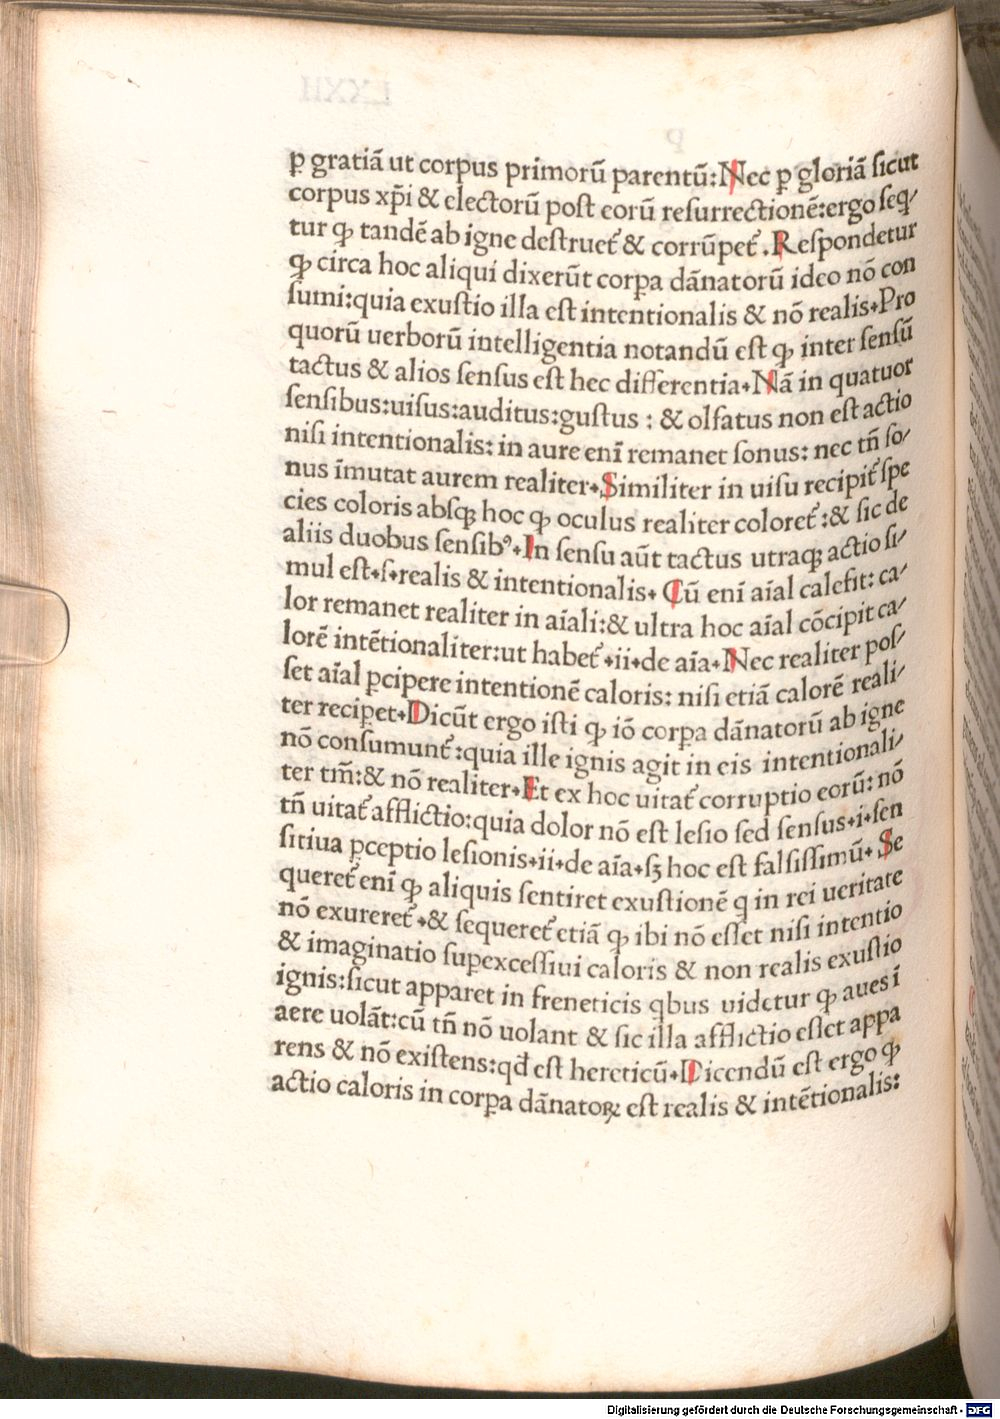 ꝑ gratiã ut corpus primorũ parentũ: Nec ꝑ gloriã ſicut
corpus xp̃i & electorũ poſt eorũ reſurrectionẽ: ergo ſeq/
tur ꝙ tandẽ ab igne deſtruet᷑ & corrũpet᷑. Reſpondetur
ꝙ circa hoc aliqui dixerũt corpa dãnatorũ ideo nõ con
ſumi: quia exuſtio illa eſt intentionalis & nõ realis. Pro
quorũ uerborũ intelligentia notandũ eſt ꝙ inter ſenſũ
tactus & alios ſenſus eſt hec differentia. Nã in quatuor
ſenſibus: uiſus: auditus: guſtus : & olfatus non eſt actio
niſi intentionalis: in aure enĩ remanet ſonus: nec tñ ſo/
nus ĩmutat aurem realiter. Similiter in uiſu recipit᷑ ſpe
cies coloris abſqꝫ hoc ꝙ oculus realiter coloret᷑: & ſic de
aliis duobus ſenſibꝰ. In ſenſu aũt tactus utraqꝫ actio ſi/
mul eſt. ſ. realis & intentionalis. Cũ enĩ aĩal calefit: ca/
lor remanet realiter in aĩali: & ultra hoc aĩal cõcipit ca/
lorẽ intẽtionaliter: ut habet᷑ .ii. de aĩa. Nec realiter poſ/
ſet aĩal ꝑcipere intentionẽ caloris: niſi etiã calorẽ reali/
ter recipet. Dicũt ergo iſti ꝙ iõ corꝑa dãnatorũ ab igne
nõ conſumunt᷑: quia ille ignis agit in eis intentionali/
ter tm̃: & nõ realiter. Et ex hoc uitat᷑ corruptio eorũ: nõ
tñ uitat᷑ afflictio: quia dolor nõ eſt leſio ſed ſenſus. i. ſen
ſitiua ꝑceptio leſionis. ii. de aĩa. ſꝫ hoc eſt falſiſſimũ. Se
queret᷑ enĩ ꝙ aliquis ſentiret exuſtionẽ q in rei ueritate
nõ exureret᷑. & ſequeret᷑ etiã ꝙ ibi nõ eſſet niſi intentio
& imaginatio ſuꝑexceſſiui caloris & non realis exuſtio
ignis: ſicut apparet in freneticis qbus uidetur ꝙ aues ĩ
aere uolãt: cũ tñ nõ uolant & ſic illa afflictio eſſet appa
rens & nõ exiſtens: qđ eſt hereticũ. Dicendũ eſt ergo ꝙ
actio caloris in corꝑa dãnatoꝝ eſt realis & intẽtionalis:
Digitalisierung gefördert durch die Deutsche Forschungsgemeinschaft - DFG